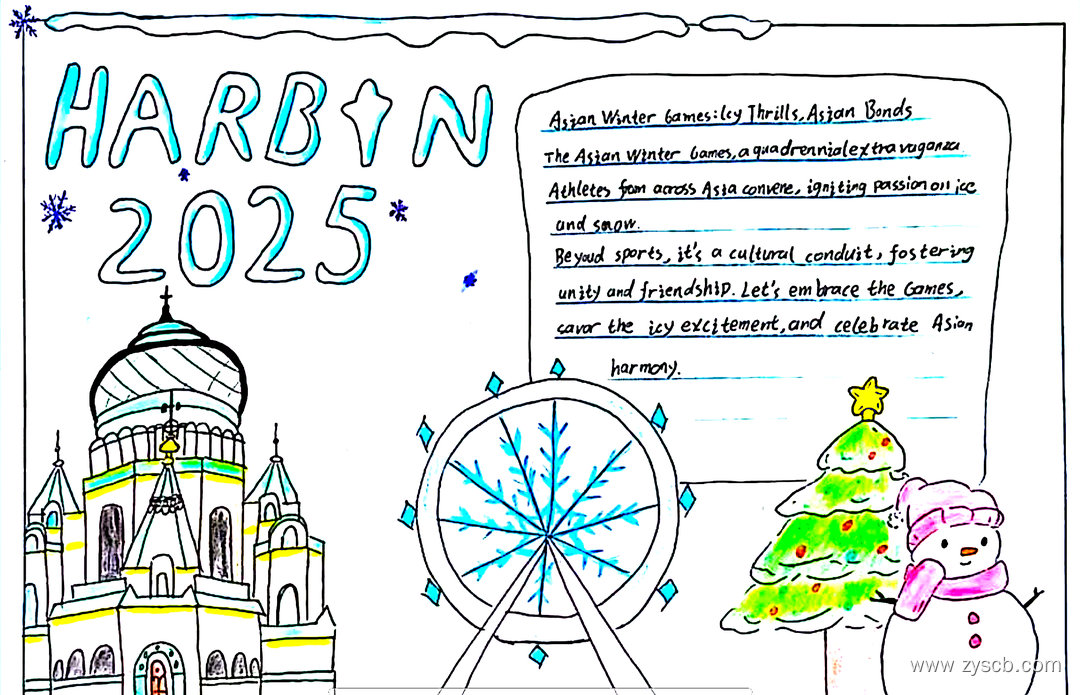 HARBIN
2025
Asian Winter Games:Icy Thrills, Asian Bonds
The Asian Winter Games, a quadrennial extravaganza.
Athletes from across Asia convene, igniting passion on ice
and snow.
Beyoud sports, it's a cultural conduit, fostering
unity and friendship. Let's embrace the Games,
savor the icy excitement, and celebrate Asian
harmony.
www.zyscb.com